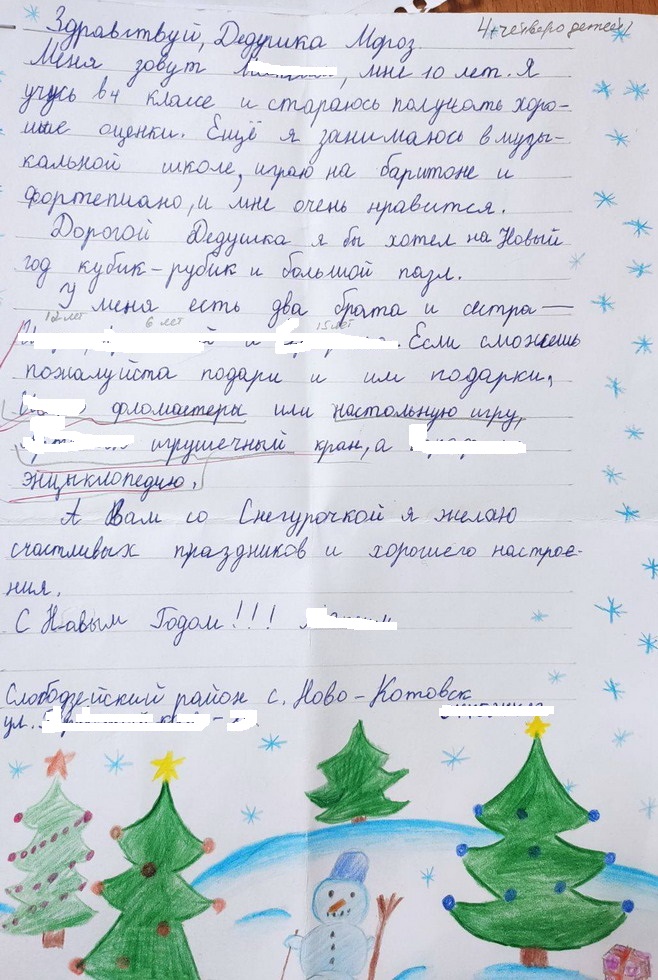 4 (четверо детей)
Здравствуй, Дедушка Мороз
Меня зовут , мне 10 лет. Я
учусь в 4 классе и стараюсь получать хоро-
шие оценки. Ещё я занимаюсь в музы-
кальной школе, играю на баритоне и
фортепиано, и мне очень нравится.
Дорогой Дедушка я бы хотел на Новый
год кубик-рубик и большой пазл.
У меня есть два брата и сестра —
12 лет 6 лет 15 лет
и . Если сможешь
пожалуйста подари и им подарки,
фломастеры или настольную игру,
игрушечный кран, а
энцыклопедию,
А Вам со Снегурочкой я желаю
счастливых праздников и хорошего настрое-
ния.
С Новым Годом!!!
Слободзейский район с. Ново-Котовск
ул.